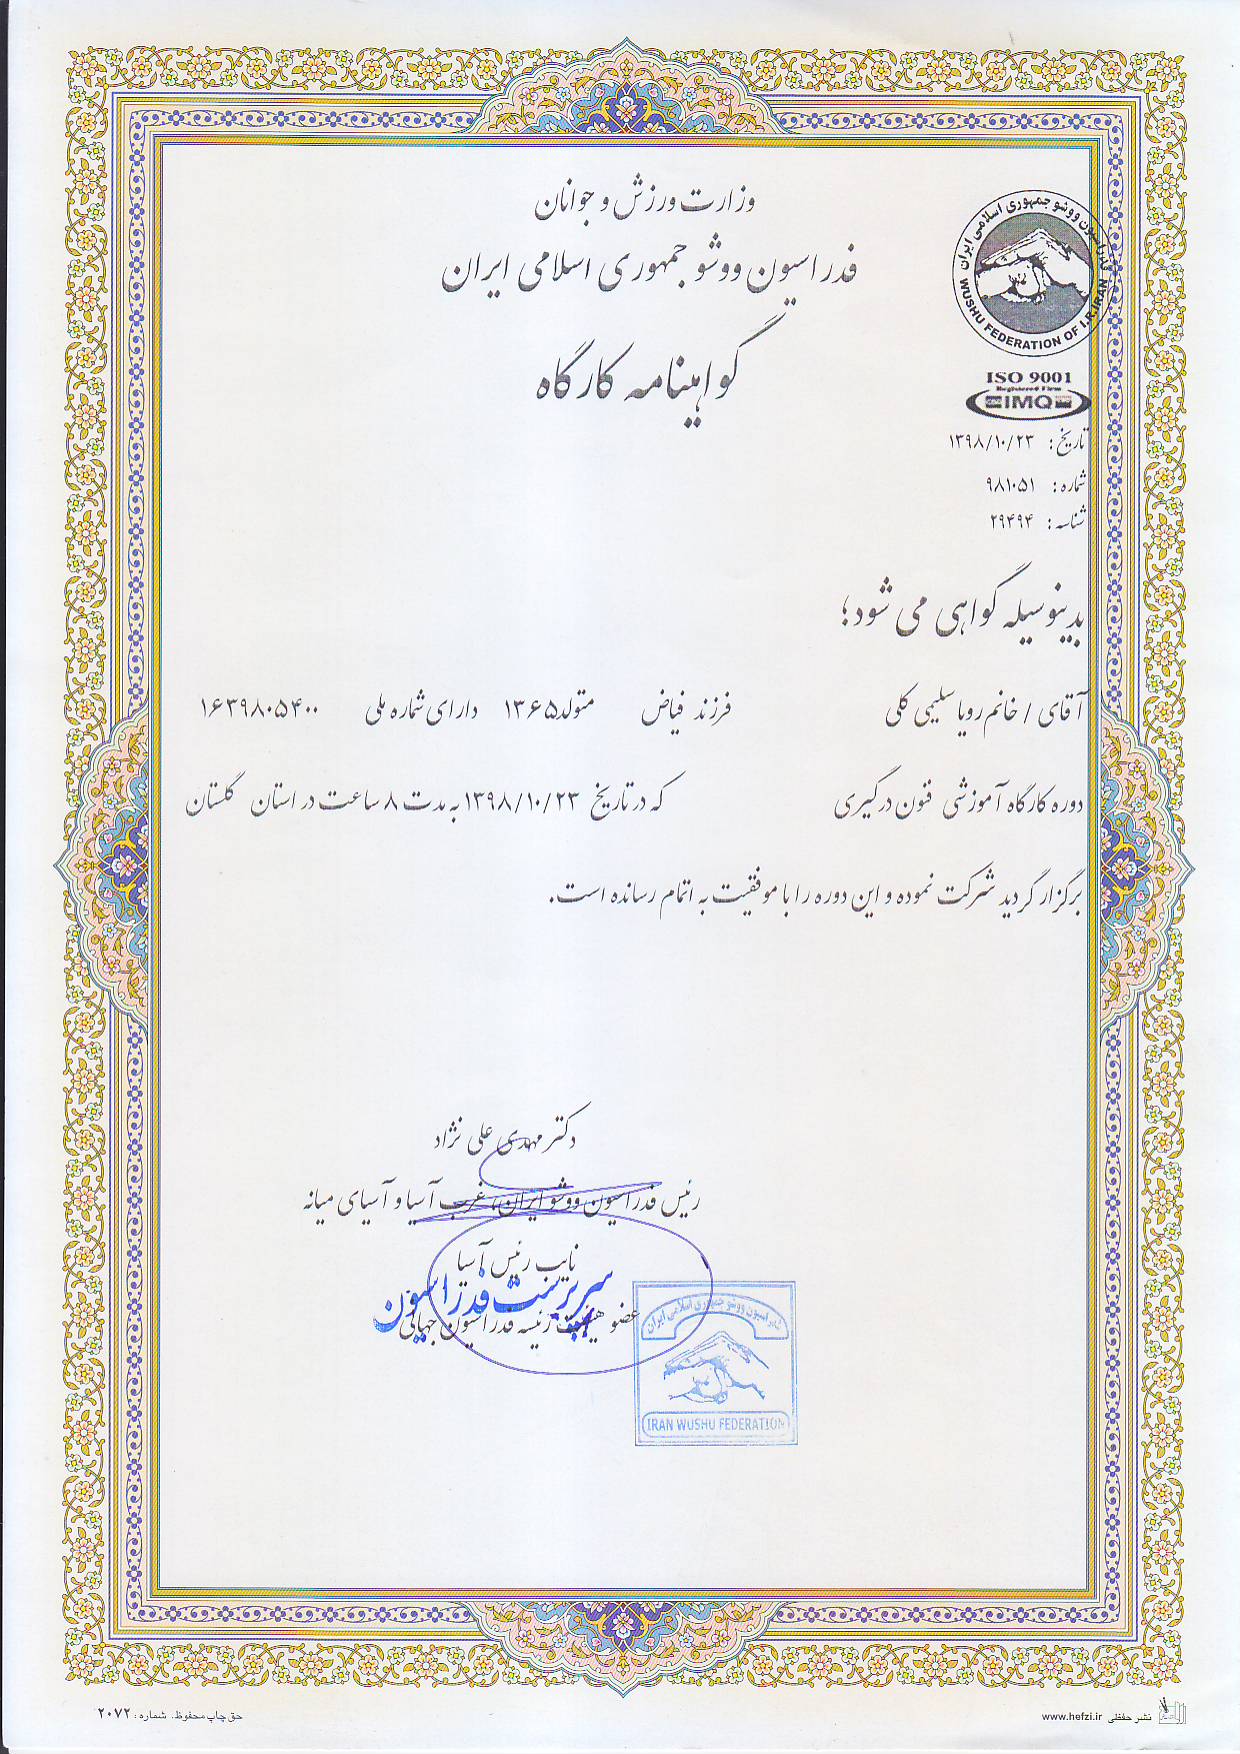 وزارت ورزش و جوانان
فدراسیون ووشو جمهوری اسلامی ایران
گواهینامه کارگاه
فدراسیون ووشو جمهوری اسلامی ایران
WUSHU FEDERATION OF I.R.IRAN
ISO 9001
Registered Firm
IMQ
تاریخ: ۱۳۹۸/۱۰/۲۳
شماره: ۹۸۱۰۵۱
شناسه: ۲۹۴۹۴
بدینوسیله گواهی می شود؛
آقای / خانم رویا سلیمی کلی فرزند فیاض متولد ۱۳۶۵ دارای شماره ملی ۱۶۳۹۸۰۵۴۰۰
دوره کارگاه آموزشی فنون درگیری که در تاریخ ۱۳۹۸/۱۰/۲۳ به مدت ۸ ساعت در استان گلستان
برگزار گردید شرکت نموده و این دوره را با موفقیت به اتمام رسانده است.
دکتر مهدی علی نژاد
رئیس فدراسیون ووشو ایران، غرب آسیا و آسیای میانه
نایب رئیس آسیا
سرپرست فدراسیون
عضو هیئت رئیسه فدراسیون جهانی
فدراسیون ووشو جمهوری اسلامی ایران
IRAN WUSHU FEDERATION
نشر حفظی www.hefzi.ir
حق چاپ محفوظ. شماره: ۲۰۷۲